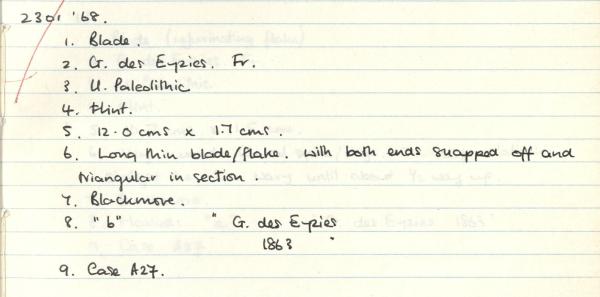 2301 '68.
1. Blade.
2. G. des Eyzies. Fr.
3. U. Paleolithic
4. Flint.
5. 12.0 cms x 1.7 cms.
6. Long thin blade/flake. with both ends snapped off and
triangular in section.
7. Blackmore.
8. "b" " G. des Eyzies
1863 "
9. Case A27.